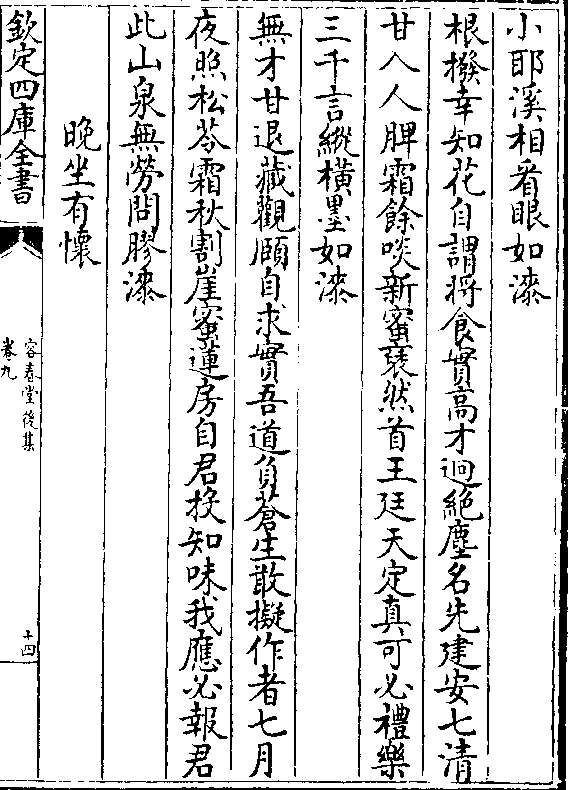 小耶溪相看眼如漆
根撥幸知花自謂將食實高才迥絕塵名先建安七清
甘入人脾霜餘啖新蜜褎然首王廷天定真可必禮樂
三千言縱橫墨如漆
無才甘退藏觀頤自求實吾道負蒼生敢擬作者七月
夜照松岑霜秋割崖蜜蓮房自君投知味我應必報君
此山泉無勞問膠漆
晚坐有懷
欽定四庫全書
容春堂後集
卷九
十四